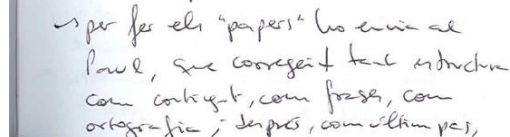 → per fer els "papers" ho envia al
Powl, que corregeix tant estructura
com contingut, com frases, com
ortografia; després, com últim pas,